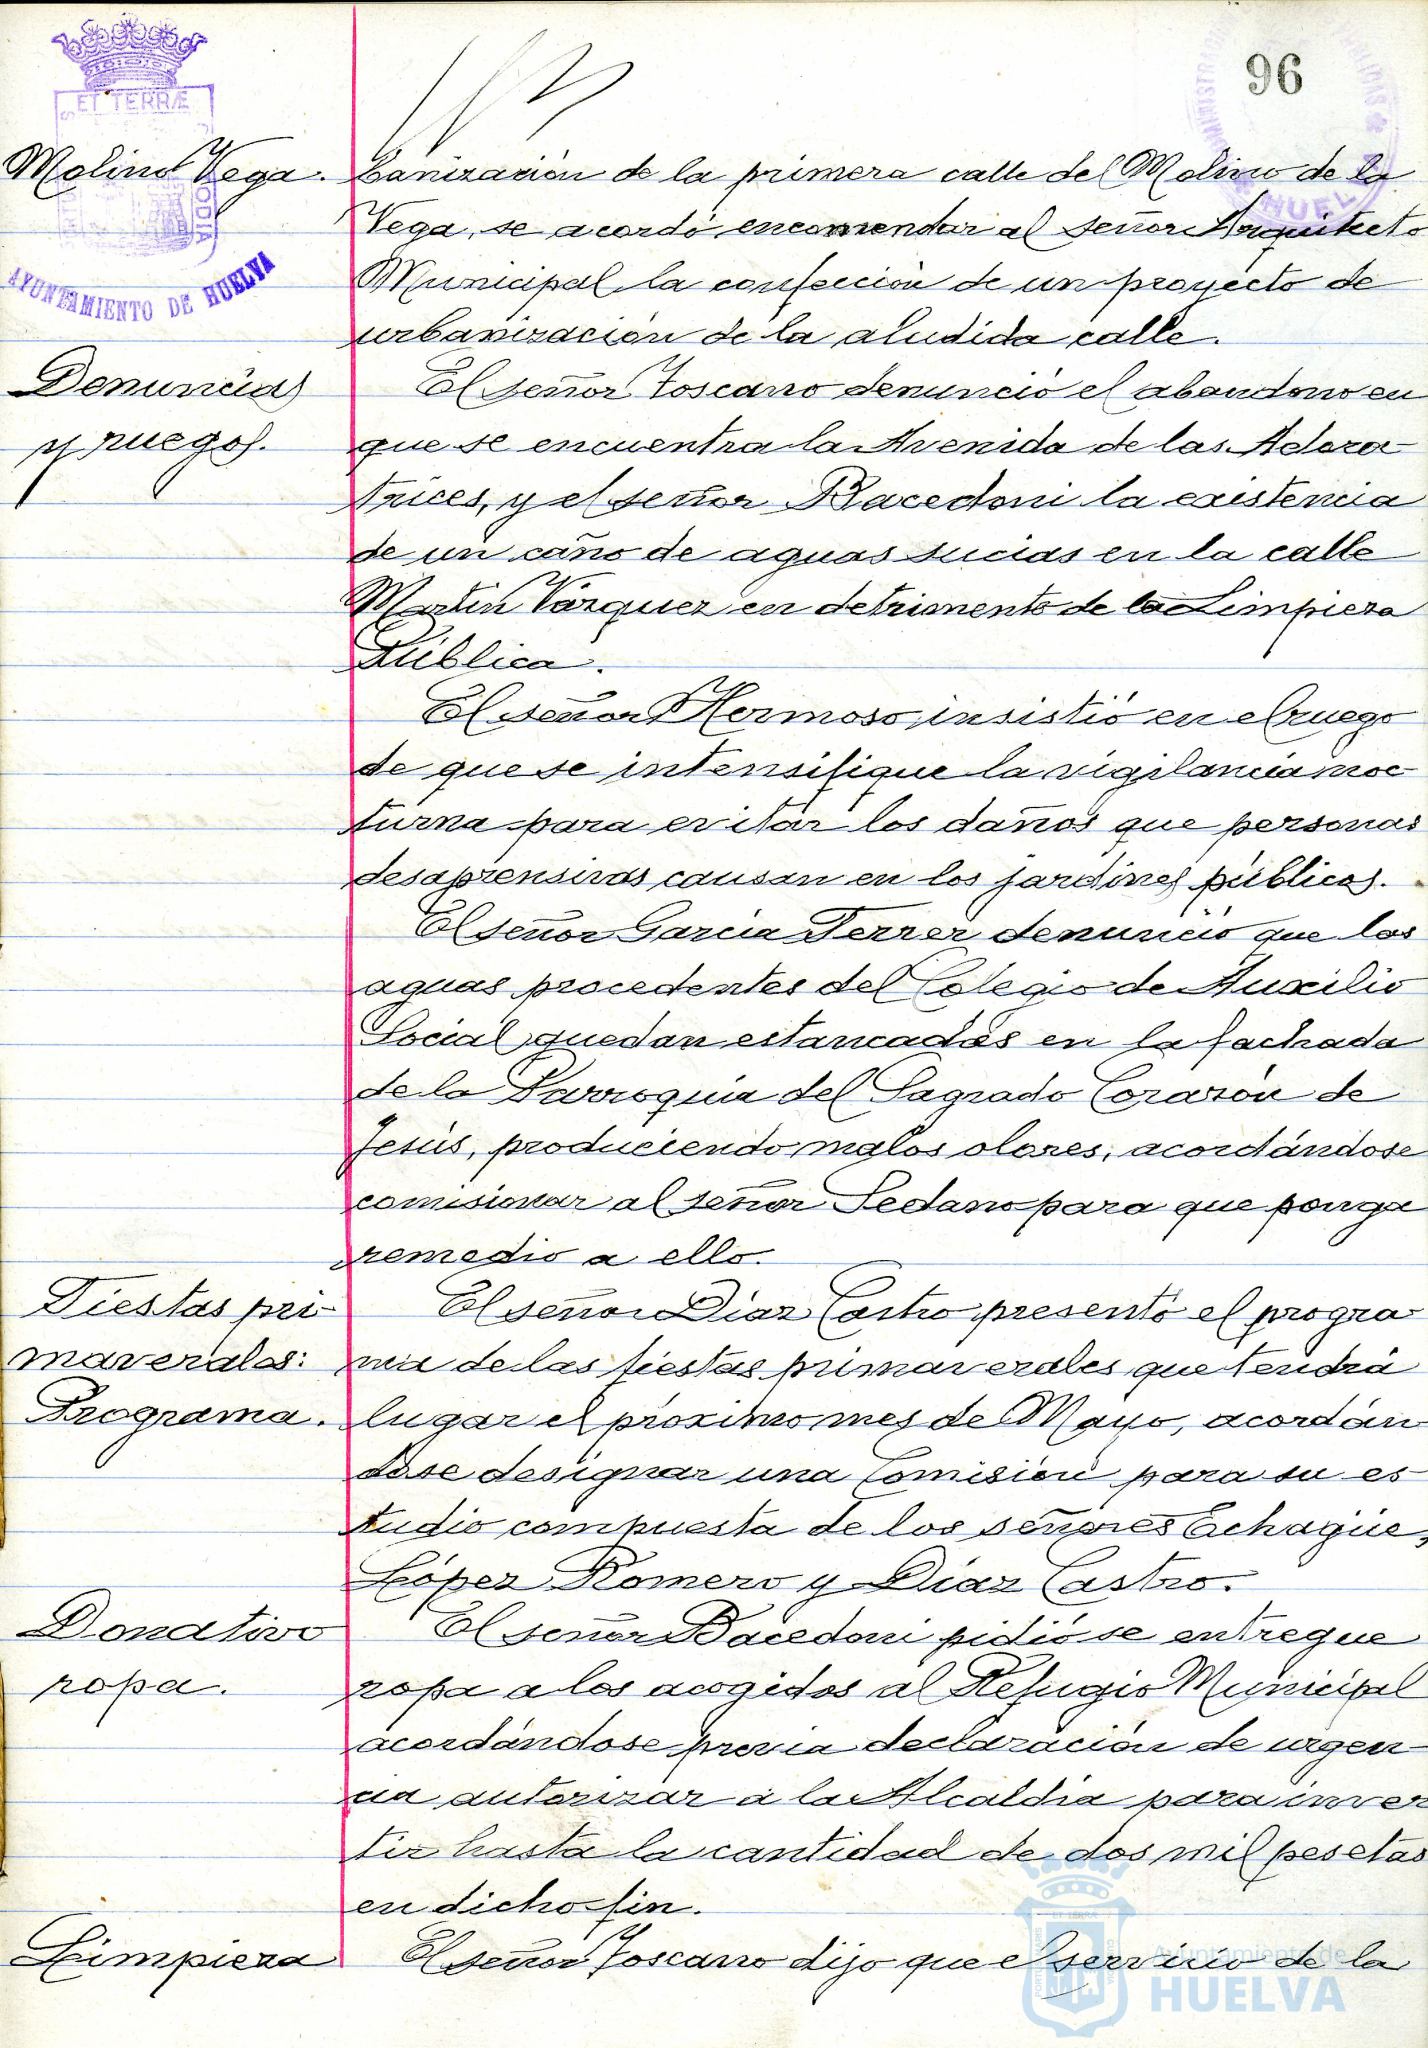 96
ET TERRÆ
AYUNTAMIENTO DE HUELVA
Molino Vega.
banización de la primera calle del Molino de la
Vega, se acordó encomendar al señor Arquitecto
Municipal la confección de un proyecto de
urbanización de la aludida calle.
Denuncias
y ruegos.
El señor Toscano denunció el abandono en
que se encuentra la Avenida de las Adora-
trices, y el señor Bacedoni la existencia
de un caño de aguas sucias en la calle
Martín Vázquez en detrimento de la Limpieza
Pública.
El señor Hermoso insistió en el ruego
de que se intensifique la vigilancia noc-
turna para evitar los daños que personas
desaprensivas causan en los jardines públicos.
El señor García Ferrer denunció que las
aguas procedentes del Colegio de Auxilio
Social quedan estancadas en la fachada
de la Parroquia del Sagrado Corazón de
Jesús, produciendo malos olores, acordándose
comisionar al señor Sedano para que ponga
remedio a ello.
Fiestas pri-
maverales:
Programa.
El señor Díaz Castro presentó el progra-
ma de las fiestas primaverales que tendrá
lugar el próximo mes de Mayo, acordán
dose designar una Comisión para su es-
tudio compuesta de los señores Echagüe,
López Romero y Díaz Castro.
Donativo
ropa.
El señor Bacedoni pidió se entregue
ropa a los acogidos al Refugio Municipal
acordándose previa declaración de urgen-
cia autorizar a la Alcaldía para inver
tir hasta la cantidad de dos mil pesetas
en dicho fin.
Limpieza
El señor Toscano dijo que el servicio de la
Ayuntamiento de
HUELVA